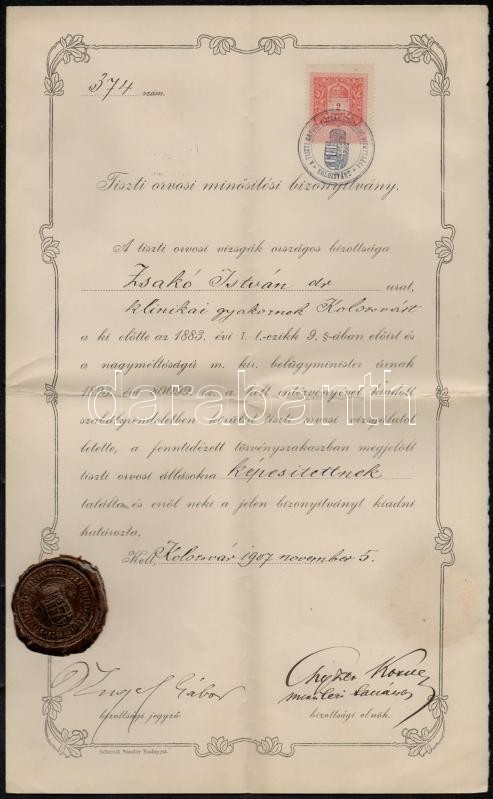 374 szám.
2
KOLOZSVÁRT
Tiszti orvosi minősitési bizonyitvány.
A tiszti orvosi vizsgák országos bizottsága
Zsakó István dr urat,
klinikai gyakornok Kolozsvárt
a ki előtte az 1883. évi I. t.-czikk 9. §-ában előirt és
a nagyméltóságú m. kir. belügyminister úrnak
a kelt intézvényével kiadott
szabályrendeletben körülirt tiszti orvosi vizsgálatot
letette, a fenntidézett törvényszakaszban megjelölt
tiszti orvosi állásokra képesitettnek
találta, és erről neki a jelen bizonyitványt kiadni
határozta.
Kelt, Kolozsvár 1907 november 5.
darabanth
Gábor
bizottsági jegyző
bizottsági elnök.
Schmidl Sándor Budapest.